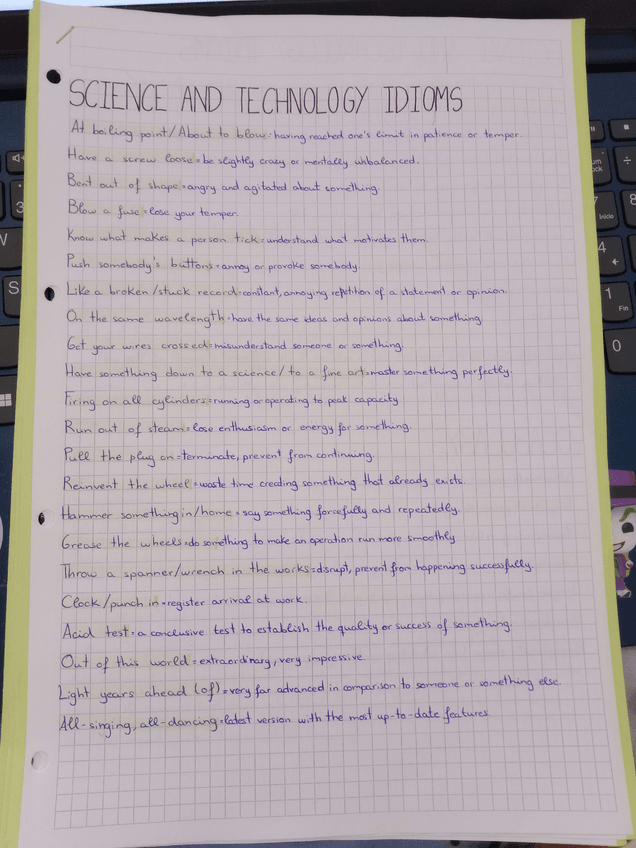 SCIENCE AND TECHNOLOGY IDIOMS
At boiling point/About to blow=having reached one's limit in patience or temper.
Have a screw loose=be slightly crazy or mentally unbalanced.
Bent out of shape=angry and agitated about something.
Blow a fuse=lose your temper.
Know what makes a person tick=understand what motivates them.
Push somebody's buttons=annoy or provoke somebody.
Like a broken/stuck record=constant, annoying repetition of a statement or opinion.
On the same wavelength=have the same ideas and opinions about something.
Get your wires crossed=misunderstand someone or something.
Have something down to a science/to a fine art=master something perfectly.
Firing on all cylinders=running or operating to peak capacity
Run out of steam=lose enthusiasm or energy for something.
Pull the plug on=terminate, prevent from continuing.
Reinvent the wheel=waste time creating something that already exists.
Hammer something in/home=say something forcefully and repeatedly.
Grease the wheels=do something to make an operation run more smoothly
Throw a spanner/wrench in the works=disrupt, prevent from happening successfully.
Clock/punch in=register arrival at work.
Acid test=a conclusive test to establish the quality or success of something.
Out of this world=extraordinary, very impressive.
Light years ahead (of)=very far advanced in comparison to someone or something else.
All-singing, all-dancing=latest version with the most up-to-date features.
3
S
7
Inicio
8
4
1
Fin
0